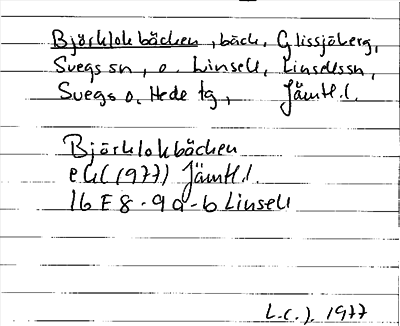 Björklokbäcken, bäck, Glissjöberg,
Svegs sn, o. Linsell, Linsells sn,
Svegs o. Hede tg, Jämtl.l.
Björklokbäcken
ek (1977) Jämtl.l.
16 E 8-9 a-b Linsell
L.C.J. 1977